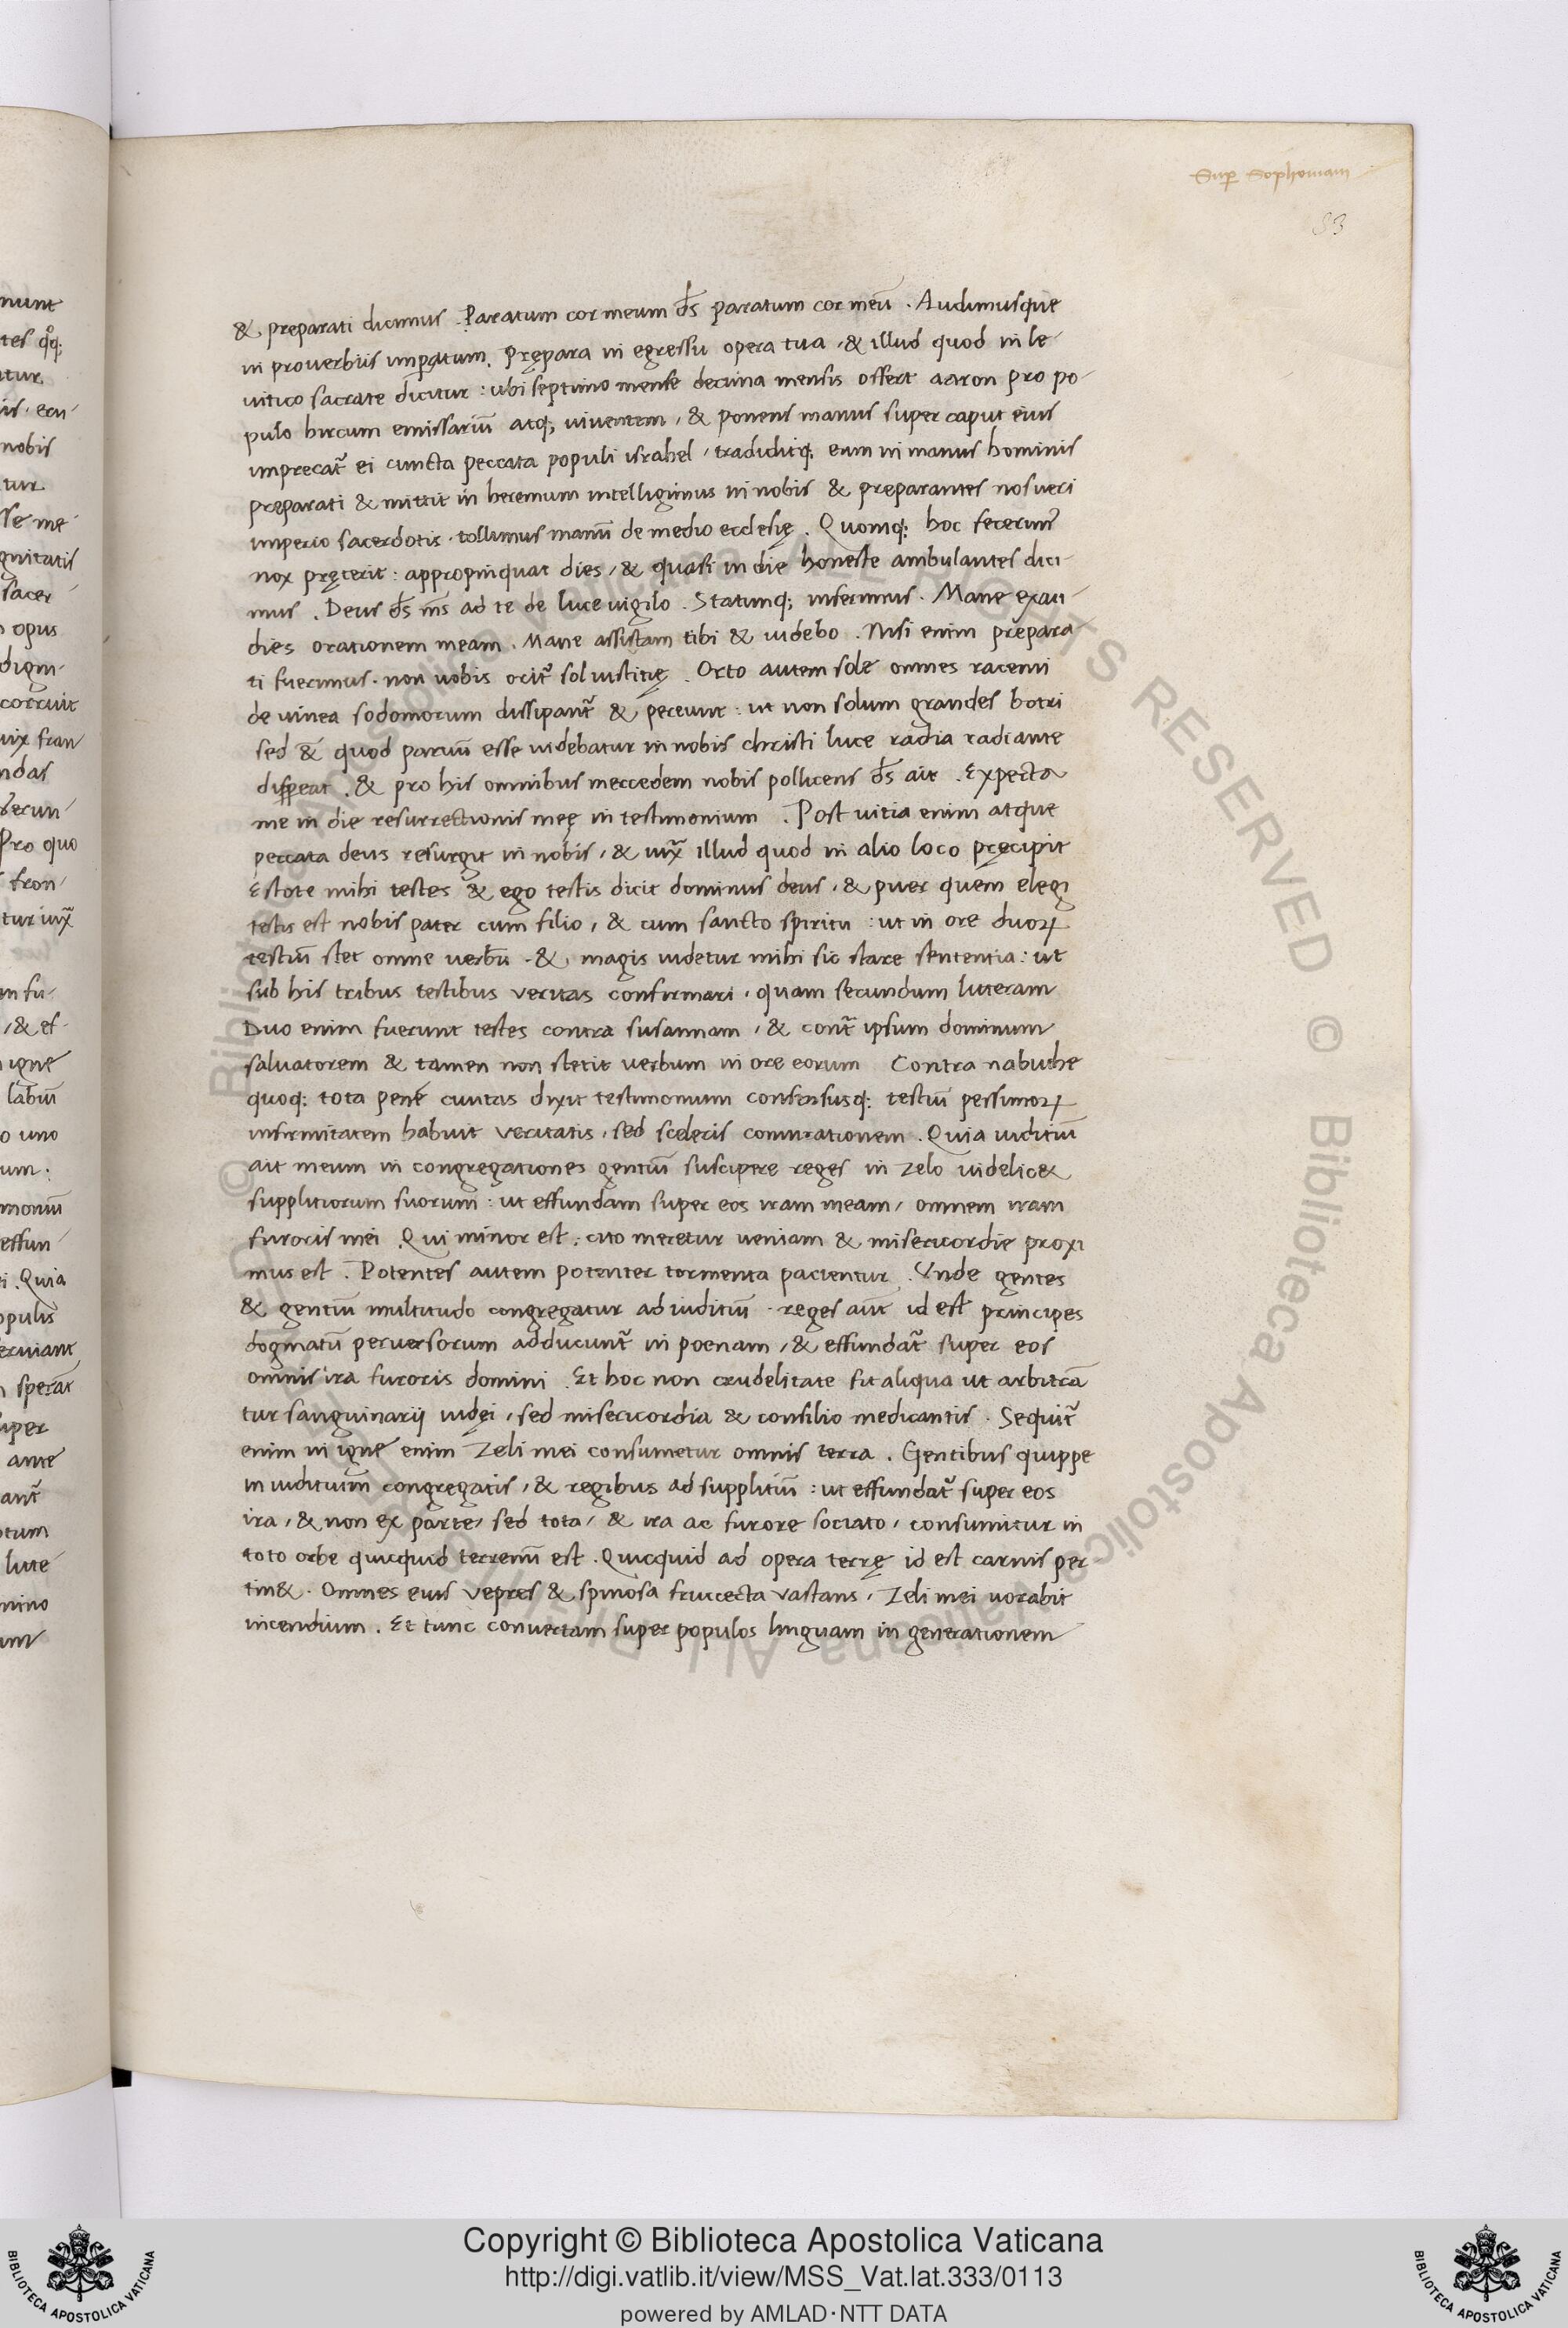 Sup Sophoniam
83
&, preparati dicimus . Paratum cor meum d̄s paratum cor meū . Audimusque
in proverbiis imperatum. Prępara in egressu opera tua , & illud quod in le
vitico sacrate dicitur : ubi septimo mense decima mensis offert aaron pro po-
pulo hircum emissariū atq; viventem , & ponens manus super caput eius
imprecat̄ ei cuncta peccata populi israhel , tradiditq; eum in manus hominis
preparati & mittit in heremum intelligimus in nobis & preparantes nos veri
imperio sacerdotis . tollimus manū de medio ecclesię . Quomq; hoc fecerim̄
nox pręterit : appropinquat dies , & quasi in die honeste ambulantes dici-
mus . Deus d̄s m̄s ad te de luce vigilo . Statimq; inferimus . Mane exau-
dies orationem meam . Mane assistam tibi & videbo . Nisi enim prepara
ti fuerimus . non nobis orit̄ sol iustitię . Orto autem sole omnes racemi
de vinea sodomorum dissipant̄ & pereunt : ut non solum grandes botri
sed & quod parvū esse videbatur in nobis christi luce radia radiante
dispereat . & pro his omnibus mercedem nobis pollicens d̄s ait . Expecta
me in die resurrectionis meę in testimonium . Post vitia enim atque
peccata deus resurgit in nobis , & iux̄ illud quod in alio loco pręcipit
Estote mihi testes & ego testis dicit dominus deus , & puer quem elegi
testis est nobis pater cum filio , & cum sancto spiritu : ut in ore duoꝝ
testiū stet omne verbū . & magis videtur mihi sic stare sententia : ut
sub his tribus testibus veritas confirmari , quam secundum litteram
Duo enim fuerunt testes contra susannam , & cont̄ ipsum dominum
salvatorem & tamen non stetit verbum in ore eorum Contra nabuthe
quoq; tota pene civitas dixit testimonium consensusq; testiū pessimoꝝ
infirmitatem habuit veritatis , sed sceleris coniurationem . Quia iuditiū
ait meum in congregationes gentiū suscipere reges in zelo videlic&
supplitiorum suorum : ut effundam super eos iram meam , omnem iram
furoris mei . Qui minor est : cito meretur veniam & misericordie proxi
mus est . Potentes autem potenter tormenta pacientur . Unde gentes
& gentiū multitudo congregatur ad iuditiū . reges aūt id est principes
dogmatū perversorum adducunt̄ in poenam , & effundat̄ super eos
omnis ira furoris domini . Et hoc non crudelitate fit aliqua ut arbitrā
tur sanguinarij iudęi , sed misericordia & consilio medicantis . Sequit̄
enim in igne enim zeli mei consumetur omnis terra . Gentibus quippe
in iuditium congregatis , & regibus ad supplitiū : ut effundat̄ super eos
ira , & non ex parte , sed tota , & ira ac furore sociato , consumitur in
toto orbe quicquid terrenū est . Quicquid ad opera terrę id est carnis per
tin& . Omnes eius vepres & spinosa fruccecta vastans , zeli mei vorabit
incendium . Et tunc convertam super populos linguam in generationem
Copyright © Biblioteca Apostolica Vaticana
http://digi.vatlib.it/view/MSS_Vat.lat.333/0113
powered by AMLAD·NTT DATA
BIBLIOTECA APOSTOLICA VATICANA
BIBLIOTECA APOSTOLICA VATICANA